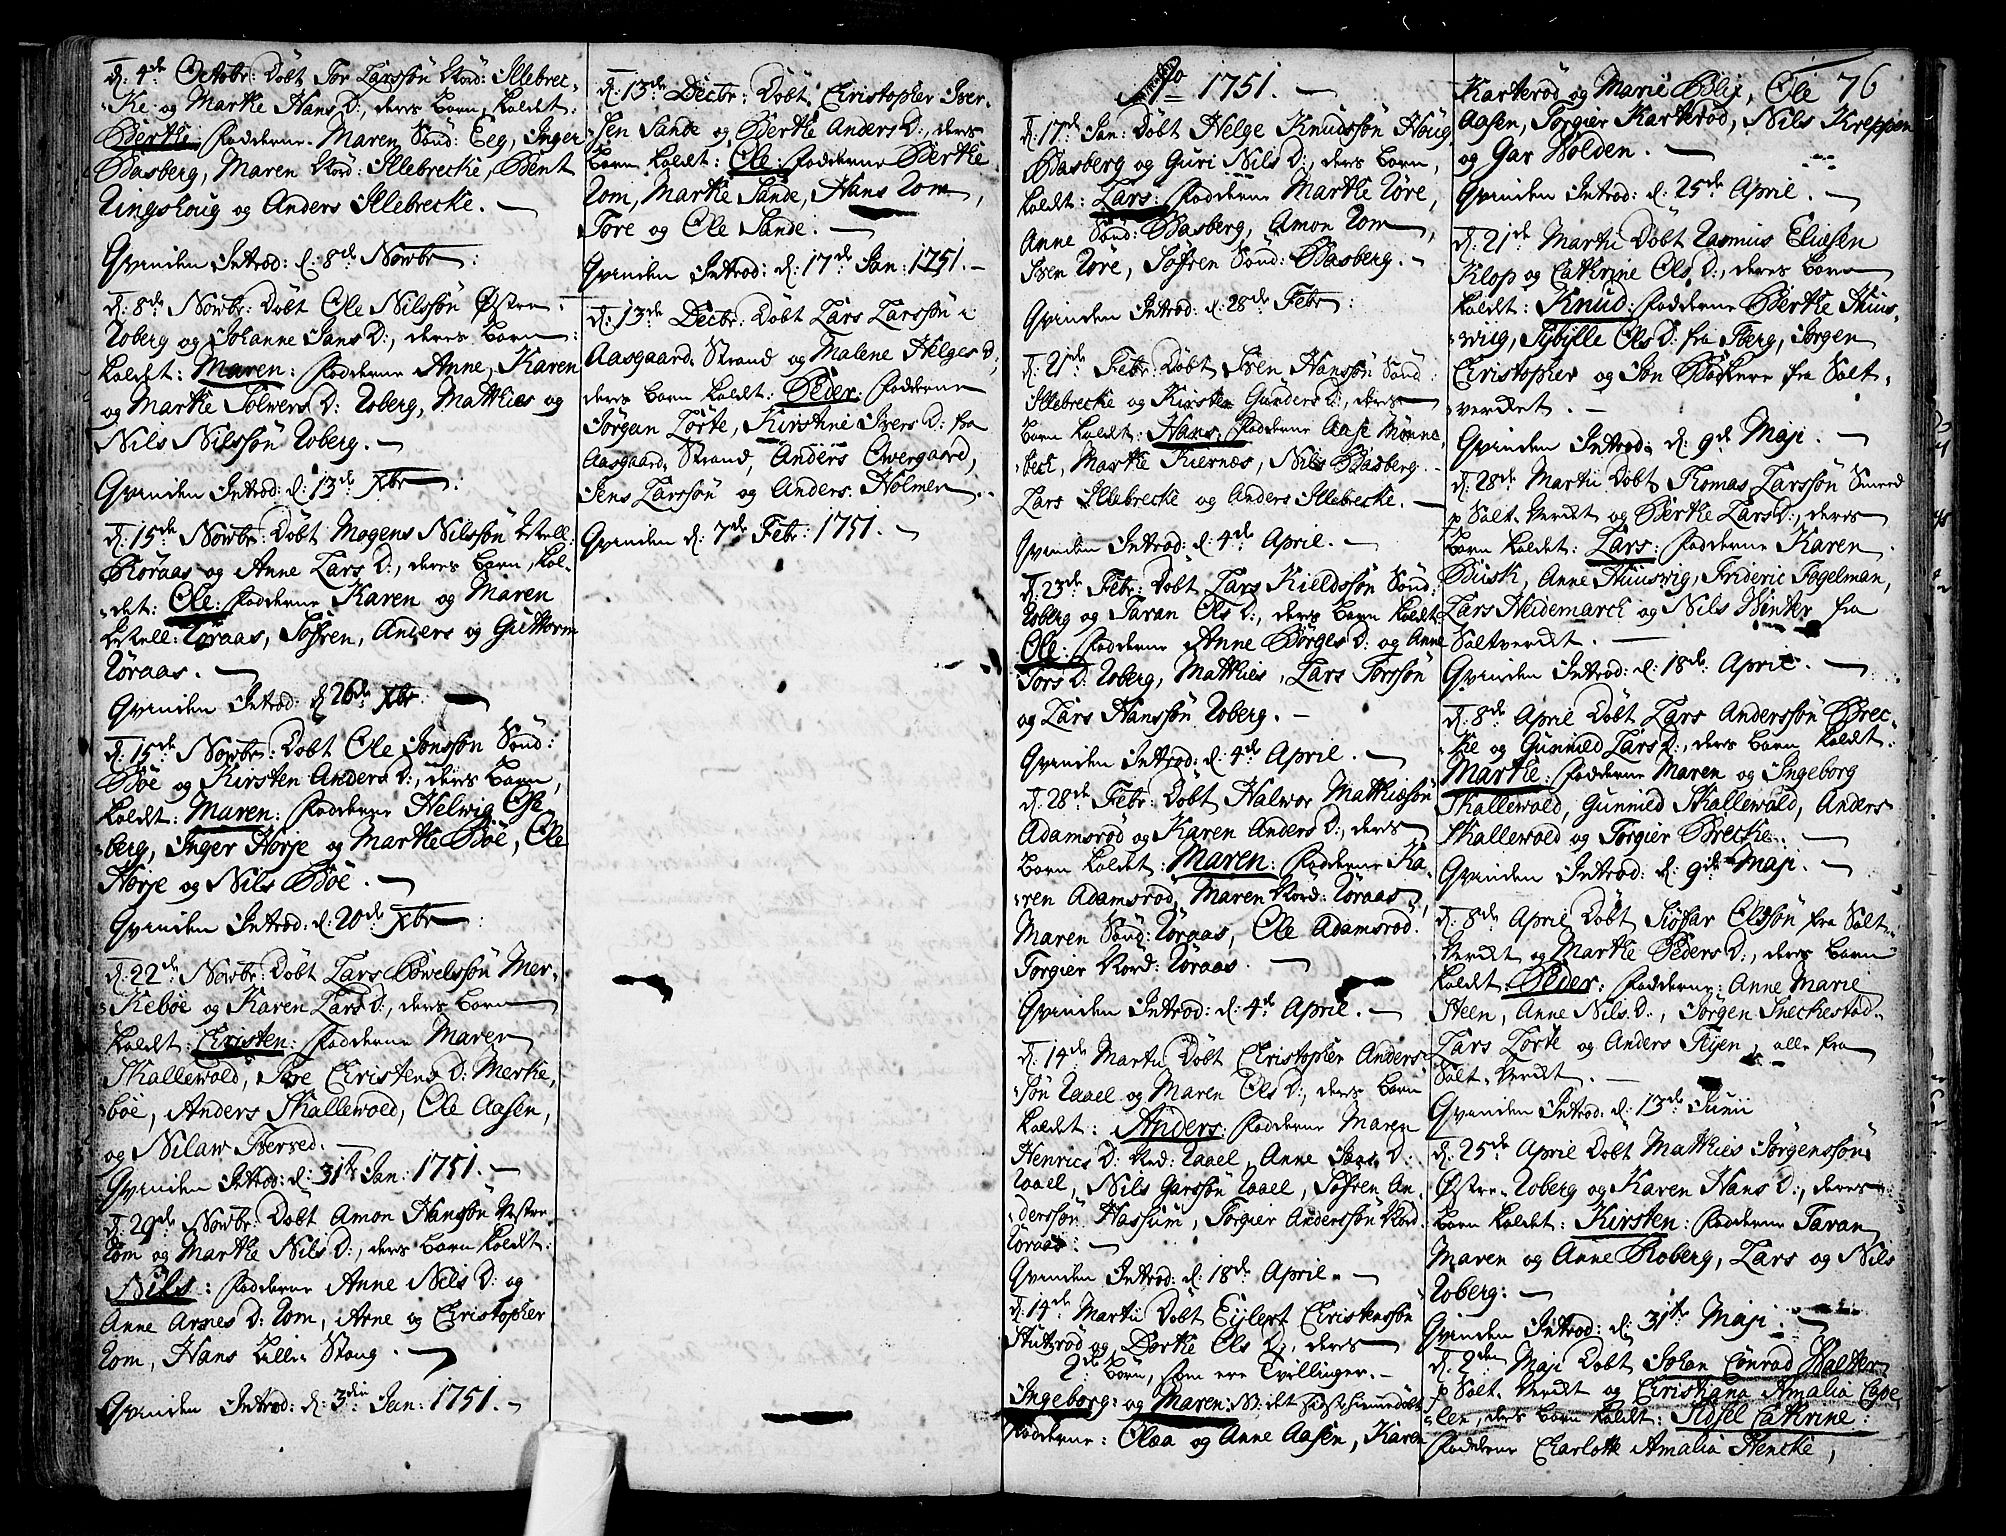 d: 4de Octobr: Döbt Tor Larssön Nord: Illebrec-
ke og Marthe Hans D:, deres barn kaldet:
Berthe: fadderne: Maren Sönd: Eeg, Inger
Basberg, Maren Nord: Illebrecke, Bent
Ringshoug og Anders Illebrecke. —
Qvinden Introd: d: 8de Novbr:
d: 8de Novbr: Döbt Ole Nilssön Östre-
Roberg og Johanne Jans D:, deres barn
kaldet: Maren: fadderne Anne, Karen
og Marthe Solvers D: Roberg, Mathies og
Nils Nilssön Roberg. —
Qvinden Introd: d: 13de Xbr:
d: 15de Novbr: Döbt Mogens Nilssön Vestell:
Röraas og Anne Lars D:, deres barn, kal-
det: Ole: fadderne Karen og Maren
Vestell: Röraas, Söfren, Anders og Guttorm
Röraas. —
Qvinden Introd: d: 26de Xbr: —
d: 15de Novbr: Döbt Ole Jonssön Sönd:
Böe og Kirsten Anders D:, deres barn,
kaldet: Maren: fadderne Helvig Ese-
berg, Inger Horje og Marthe Böe, Ole
Horje og Nils Böe. —
Qvinden Introd: d: 20de Xbr:
d: 22de Novbr: Döbt Lars Povelssön Mer-
keböe og Karen Lars D:, deres barn
kaldet: Christen: fadderne Maren
Skallewold, Sore Christens D: Merke-
böe, Anders Skallewold, Ole Aasen,
og Nilaw Bersed. —
Qvinden Introd: d: 31te Jan: 1751. —
d: 29de Novbr: Döbt Amon Hanssön Vestre-
Rom og Marthe Nils D:, deres barn kaldet:
Nils: fadderne Anne Nils D: og
Anne Arnes D: Rom, Arne og Christopher
Rom, Hans Lille Stang. —
Qvinden Introd: d: 3die Jan: 1751. —
d: 13de Decbr: Döbt Christopher Iver-
sen Sande og Berthe Anders D:, deres
barn kaldet: Ole: fadderne Berthe
Rom, Marthe Sande, Hans Rom,
Tore og Ole Sande. —
Qvinden Introd: d: 17de Jan: 1751. —
d: 13de Decbr: Döbt Lars Larssön i
Aasgaard-Strand og Malene Helges D:,
deres barn kaldet: Peder: fadderne
Jörgen Lörte, Kirstine Ivers D: fra
Aasgaard-Strand, Anders Overgaard,
Jens Larssön og Anders Holmen.
Qvinden d: 7de Febr: 1751. —
Ao 1751. —
d: 17de Jan: Döbt Helge Knudssön Houg
Basberg og Guri Nils D:, deres barn,
kaldet: Lars: fadderne Marthe Röre,
Anne Sönd: Basberg, Amon Rom,
Iven Röre, Söfren Sönd: Basberg. —
Qvinden Introd: d: 28de Febr:
d: 21de Febr: Döbt Iven Hanssön Sönd:
Illebrecke og Kirsten Gunders D:, deres
barn kaldet: Hans: fadderne Aase Mönne-
beck, Marthe Kiernæs, Nils Basberg
Lars Illebrecke og Anders Illebrecke. —
Qvinden Introd: d: 4de April. —
d: 23de Febr: Döbt Lars Kieldssön Sönd:
Roberg og Taran Ols D:, deres barn kaldet:
Ole: fadderne Anne Börges D: og Anne
Tors D: Roberg, Mathies, Lars Torssön
og Lars Hanssön Roberg. —
Qvinden Introd: d: 4de April. —
d: 28de Febr: Döbt Halvor Mathiesön
Adamsröd og Karen Anders D:, deres
barn kaldet: Maren: fadderne Ka-
ren Adamsröd, Maren Nord: Röraas,
Maren Sönd: Röraas, Ole Adamsröd.
Torgier Nord: Röraas. —
Qvinden Introd: d: 4de April. —
d: 14de Martii Döbt Christopher Anders-
sön Raael og Maren Ols D:, deres barn
kaldet: Anders: fadderne Maren
Henrics D: Nord: Raael, Anne Jans D:
Raael, Nils Garssön Raael, Söfren An-
derssön Hassum, Torgier Anderssön Nord.
Röraas: —
Qvinden Introd: d: 18de April. —
d: 14de Martii Döbt Eylert Christenssön
Stutsröd og Dorthe Ols D:, deres
2de börn, som ere Tvillinger. —
Ingeborg: og Maren: NB: det sidste hiemedöbt
fadderne: Olaa og Anne Aasen, Karen
76
Karteröd og Marie Blix, Ole
Aasen, Torgier Karteröd, Nils Kreppen
og Gar Holden. —
Qvinden Introd: d: 25de April. —
d: 21de Martii Döbt Rasmus Eliesen
Klop og Cathrine Ols D:, deres barn
kaldet: Knud: fadderne Berthe Huus-
wiig, Sybille Ols D: fra Berg, Jörgen
Christopher og Jon Böckere fra Salt-
verket. —
Qvinden Introd: d: 9de Maji. —
d: 28de Martii Döbt Thomas Larssön Smed
p Salt-Verket og Berthe Lars D:, deres
barn kaldet: Lars: fadderne Karen
Busk, Anne Huuswig, Frideric Fogelman,
Lars Hedemarck og Nils Winter fra
Saltverket. —
Qvinden Introd: d: 18de April. —
d: 8de April Döbt Lars Anderssön Brec-
ke og Gunnild Lars D:, deres barn kaldet:
Marthe: fadderne Maren og Ingeborg
Skallewold, Gunnild Skallewold, Anders
Skallewold og Torgier Brecke. —
Qvinden Introd: d: 9de Maji. —
d: 8de April Döbt Siofar Olssön fra Salt-
Verket og Marthe Peders D:, deres barn
kaldet: Peder: fadderne: Anne Marie
Steen, Anne Nils D:, Jörgen Sneckestad,
Lars Lörte og Anders Feyen, alle fra
Salt-Verket. —
Qvinden Introd: d: 13de Junii
d: 25de April Döbt Mathies Jörgenssön
Östre-Roberg og Karen Hans D:, deres
barn kaldet: Kirsten: fadderne Taran,
Maren og Anne Roberg, Lars og Nils
Roberg: —
Qvinden Introd: d: 31te Maji. —
d: 2den Maji Döbt Johan Conrad Walter
p Salt-Verket og Christiana Amalia Cybe
len, deres barn kaldet: Sidsel Cathrine:
fadderne Charlotte Amalia Hencke,